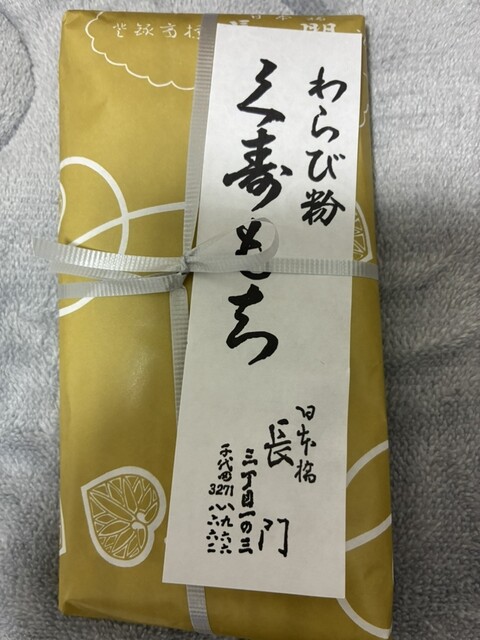 登録商標
わらび粉
久寿もち
日本橋
長門
三丁目一の三
千代田3271 八九六六
八六六二